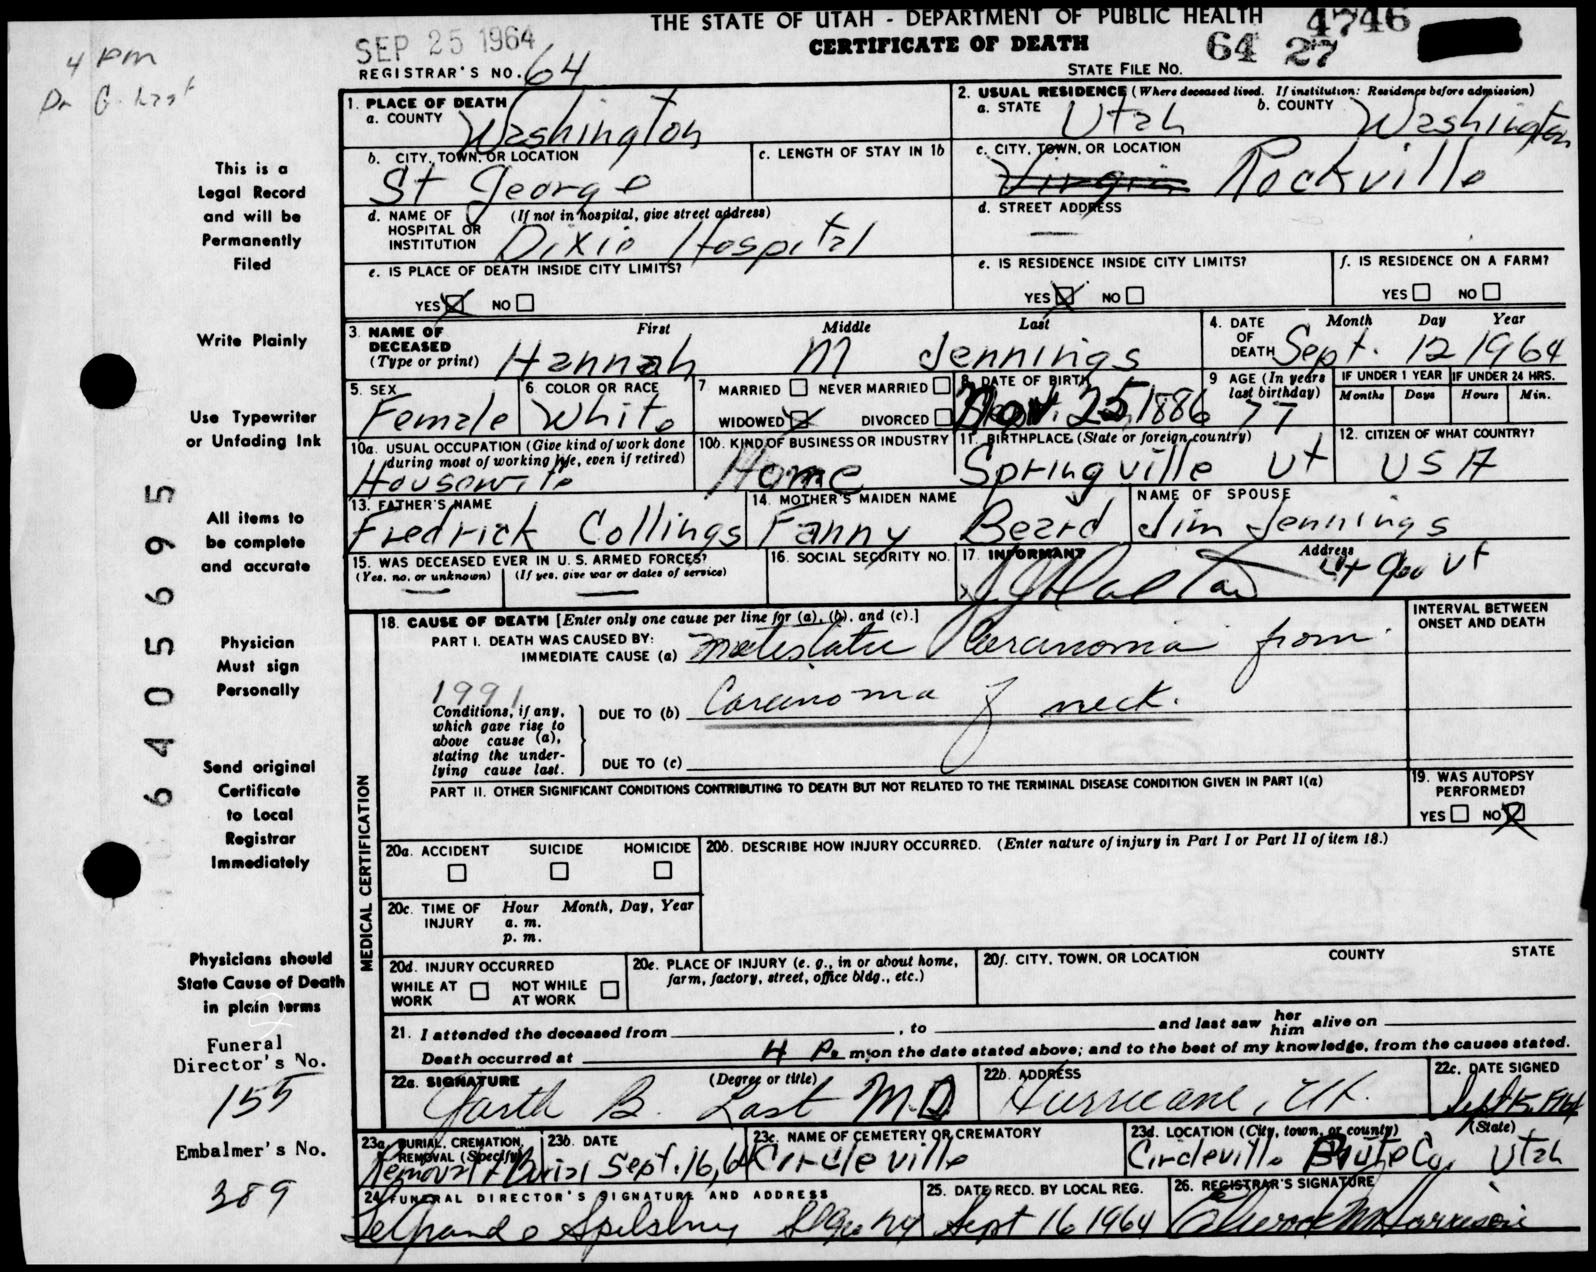 THE STATE OF UTAH - DEPARTMENT OF PUBLIC HEALTH
CERTIFICATE OF DEATH
4746
SEP 25 1964
REGISTRAR'S NO. 64
STATE FILE NO. 64 27
4 PM
Dr G. Last
This is a
Legal Record
and will be
Permanently
Filed
Write Plainly
Use Typewriter
or Unfading Ink
All items to
be complete
and accurate
Physician
Must sign
Personally
Send original
Certificate
to Local
Registrar
Immediately
Physicians should
State Cause of Death
in plain terms
Funeral
Director's No.
155
Embalmer's No.
389
6405695
1. PLACE OF DEATH
a. COUNTY Washington
2. USUAL RESIDENCE (Where deceased lived. If institution: Residence before admission)
a. STATE Utah b. COUNTY Washington
b. CITY, TOWN, OR LOCATION St George
c. LENGTH OF STAY IN 1b
c. CITY, TOWN, OR LOCATION Virgin Rockville
d. NAME OF HOSPITAL OR INSTITUTION (If not in hospital, give street address) Dixie Hospital
d. STREET ADDRESS —
e. IS PLACE OF DEATH INSIDE CITY LIMITS?
YES X NO
e. IS RESIDENCE INSIDE CITY LIMITS?
YES X NO
f. IS RESIDENCE ON A FARM?
YES NO
3. NAME OF DECEASED (Type or print) First Middle Last
Hannah M Jennings
4. DATE OF DEATH Month Day Year
Sept. 12 1964
5. SEX Female
6. COLOR OR RACE White
7 MARRIED NEVER MARRIED
WIDOWED X DIVORCED
8. DATE OF BIRTH Nov. 25, 1886
9 AGE (In years last birthday) 77
IF UNDER 1 YEAR Months Days
IF UNDER 24 HRS. Hours Min.
10a. USUAL OCCUPATION (Give kind of work done during most of working life, even if retired) Housewife
10b. KIND OF BUSINESS OR INDUSTRY Home
11. BIRTHPLACE (State or foreign country) Springville Ut
12. CITIZEN OF WHAT COUNTRY? USA
13. FATHER'S NAME Fredrick Collings
14. MOTHER'S MAIDEN NAME Fanny Beard
NAME OF SPOUSE Jim Jennings
15. WAS DECEASED EVER IN U. S. ARMED FORCES?
(Yes, no, or unknown) — (If yes, give war or dates of service) —
16. SOCIAL SECURITY NO.
17. INFORMANT Address
MEDICAL CERTIFICATION
18. CAUSE OF DEATH [Enter only one cause per line for (a), (b), and (c).]
INTERVAL BETWEEN ONSET AND DEATH
PART I. DEATH WAS CAUSED BY:
IMMEDIATE CAUSE (a) Metastatic Carcinoma from
1991
Conditions, if any, which gave rise to above cause (a), stating the underlying cause last.
DUE TO (b) Carcinoma of neck.
DUE TO (c)
PART II. OTHER SIGNIFICANT CONDITIONS CONTRIBUTING TO DEATH BUT NOT RELATED TO THE TERMINAL DISEASE CONDITION GIVEN IN PART I(a)
19. WAS AUTOPSY PERFORMED?
YES NO X
20a. ACCIDENT SUICIDE HOMICIDE
20b. DESCRIBE HOW INJURY OCCURRED. (Enter nature of injury in Part I or Part II of item 18.)
20c. TIME OF INJURY Hour Month, Day, Year
a. m.
p. m.
20d. INJURY OCCURRED
WHILE AT WORK NOT WHILE AT WORK
20e. PLACE OF INJURY (e. g., in or about home, farm, factory, street, office bldg., etc.)
20f. CITY, TOWN, OR LOCATION COUNTY STATE
21. I attended the deceased from , to and last saw her him alive on
Death occurred at 4 P. m; on the date stated above; and to the best of my knowledge, from the causes stated.
22a. SIGNATURE (Degree or title) Garth B. Last M.D.
22b. ADDRESS Hurricane, Ut.
22c. DATE SIGNED
23a. BURIAL, CREMATION, REMOVAL (Specify) Removal + Burial
23b. DATE Sept. 16, 64
23c. NAME OF CEMETERY OR CREMATORY Circleville
23d. LOCATION (City, town, or county) (State)
Circleville Piute Co, Utah
24. FUNERAL DIRECTOR'S SIGNATURE AND ADDRESS
LeGrande Spilsbury
25. DATE RECD. BY LOCAL REG. Sept 16 1964
26. REGISTRAR'S SIGNATURE
Harrison